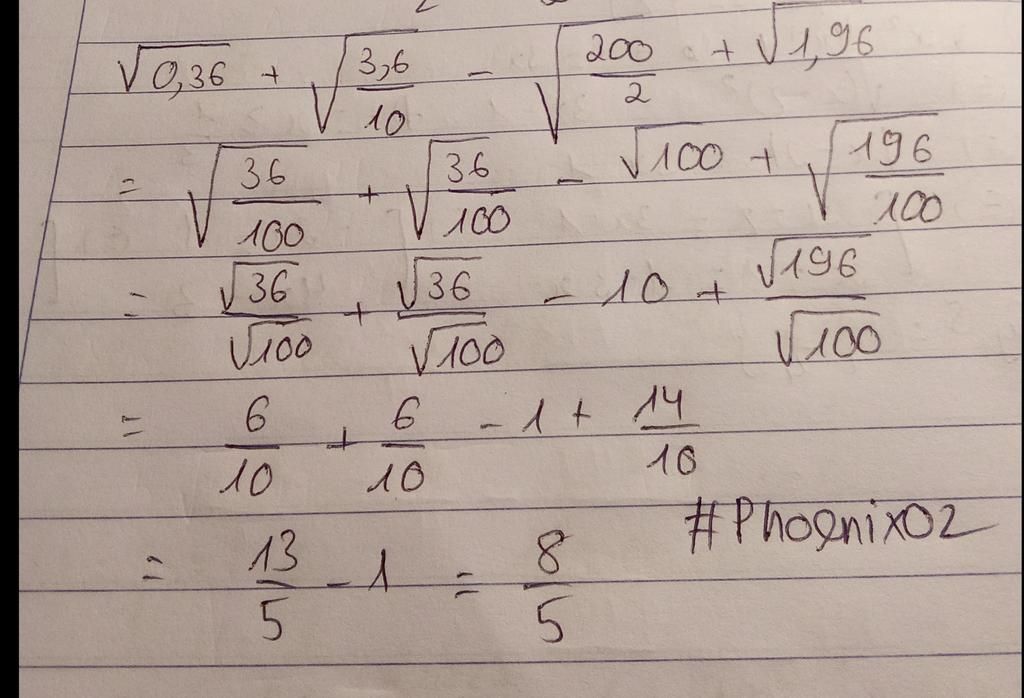 √0,36 + √(3,6/10) - √(200/2) + √1,96
= √(36/100) + √(36/100) - √100 + √(196/100)
= √36/√100 + √36/√100 - 10 + √196/√100
= 6/10 + 6/10 - 1 + 14/10
= 13/5 - 1 = 8/5
#Phoenix02